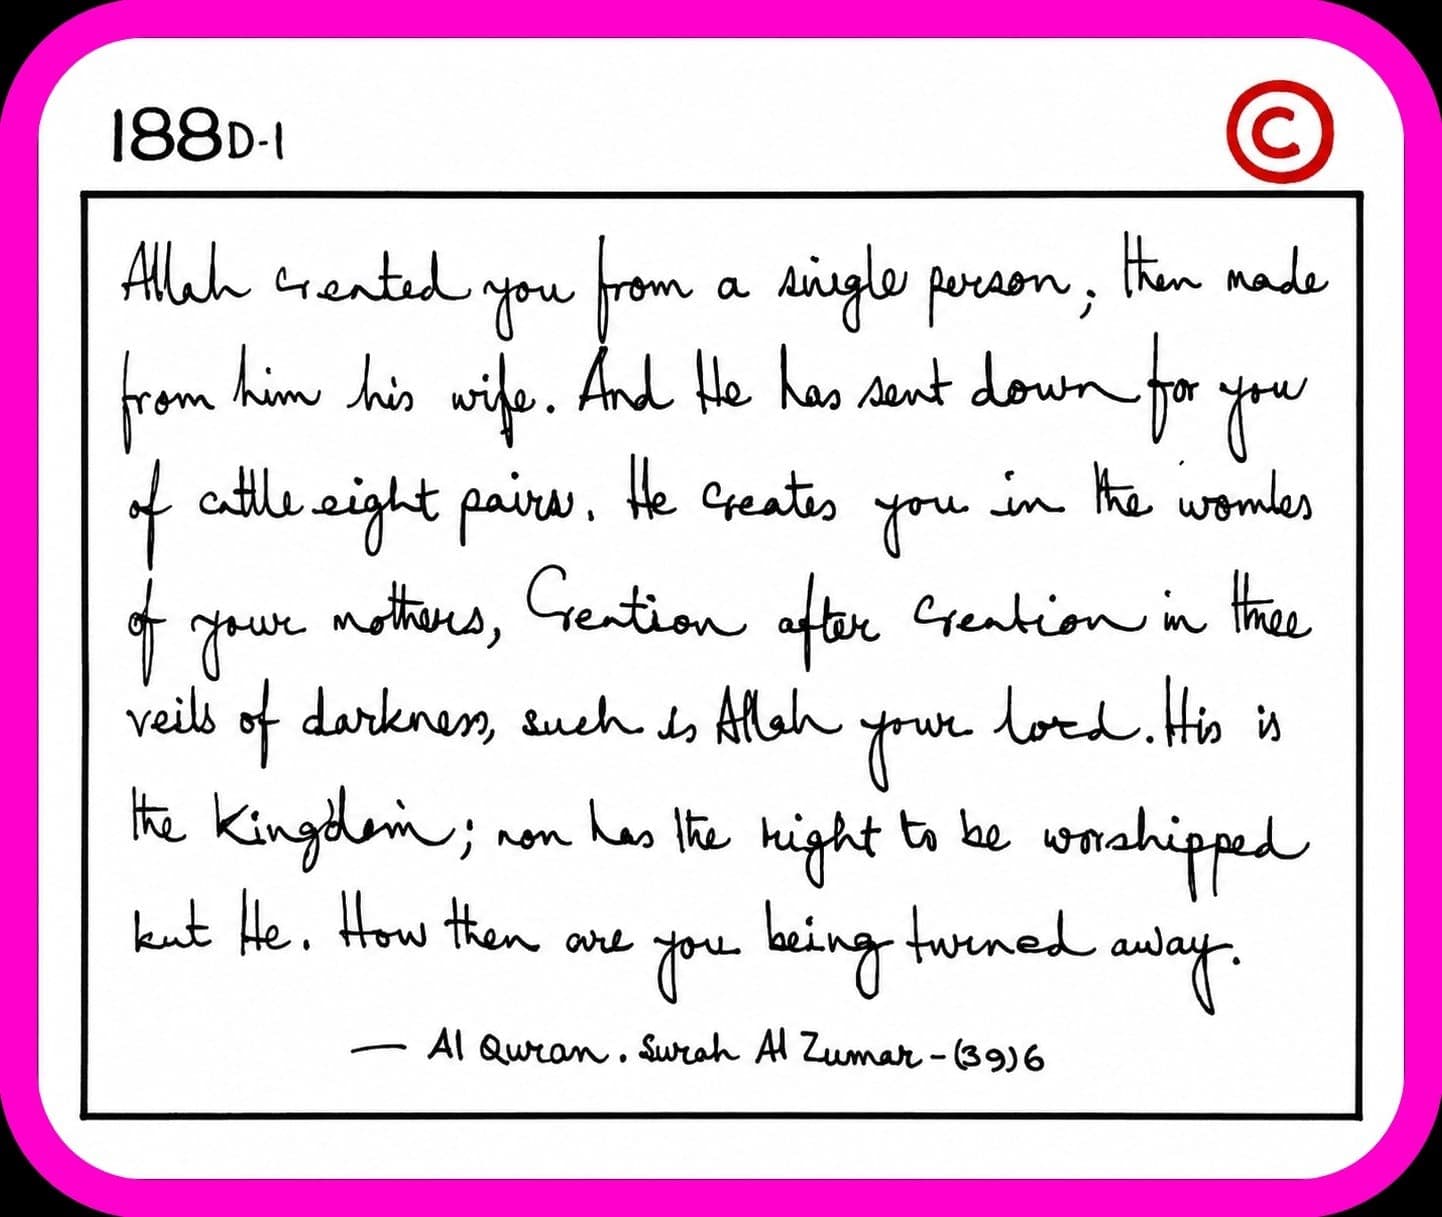 188D-1
©
Allah created you from a single person, then made
from him his wife. And He has sent down for you
of cattle eight pairs. He creates you in the wombs
of your mothers, Creation after creation in three
veils of darkness, such is Allah your lord. His is
the Kingdom; non has the right to be worshipped
but He. How then are you being turned away.
— Al Quran. Surah Al Zumar - (39) 6